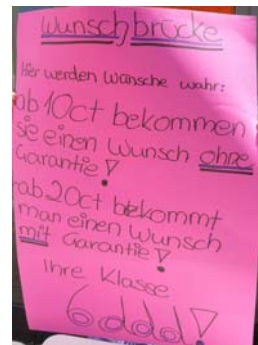 Wunschbrücke
Hier werden Wünsche wahr:
ab 10ct bekommen
sie einen Wunsch ohne
Garantie!
ab 20ct bekommt
man einen Wunsch
mit Garantie!
Ihre Klasse
6ddd!